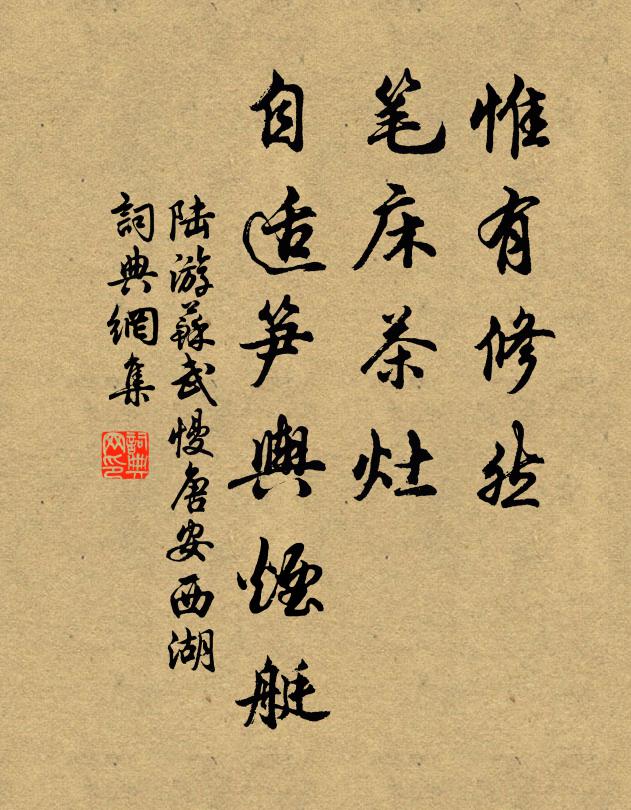 惟有修然
笔床茶灶
自适笋輿煙艇
陆游蘇武慢唐安西湖
詞典網集
詞典网印